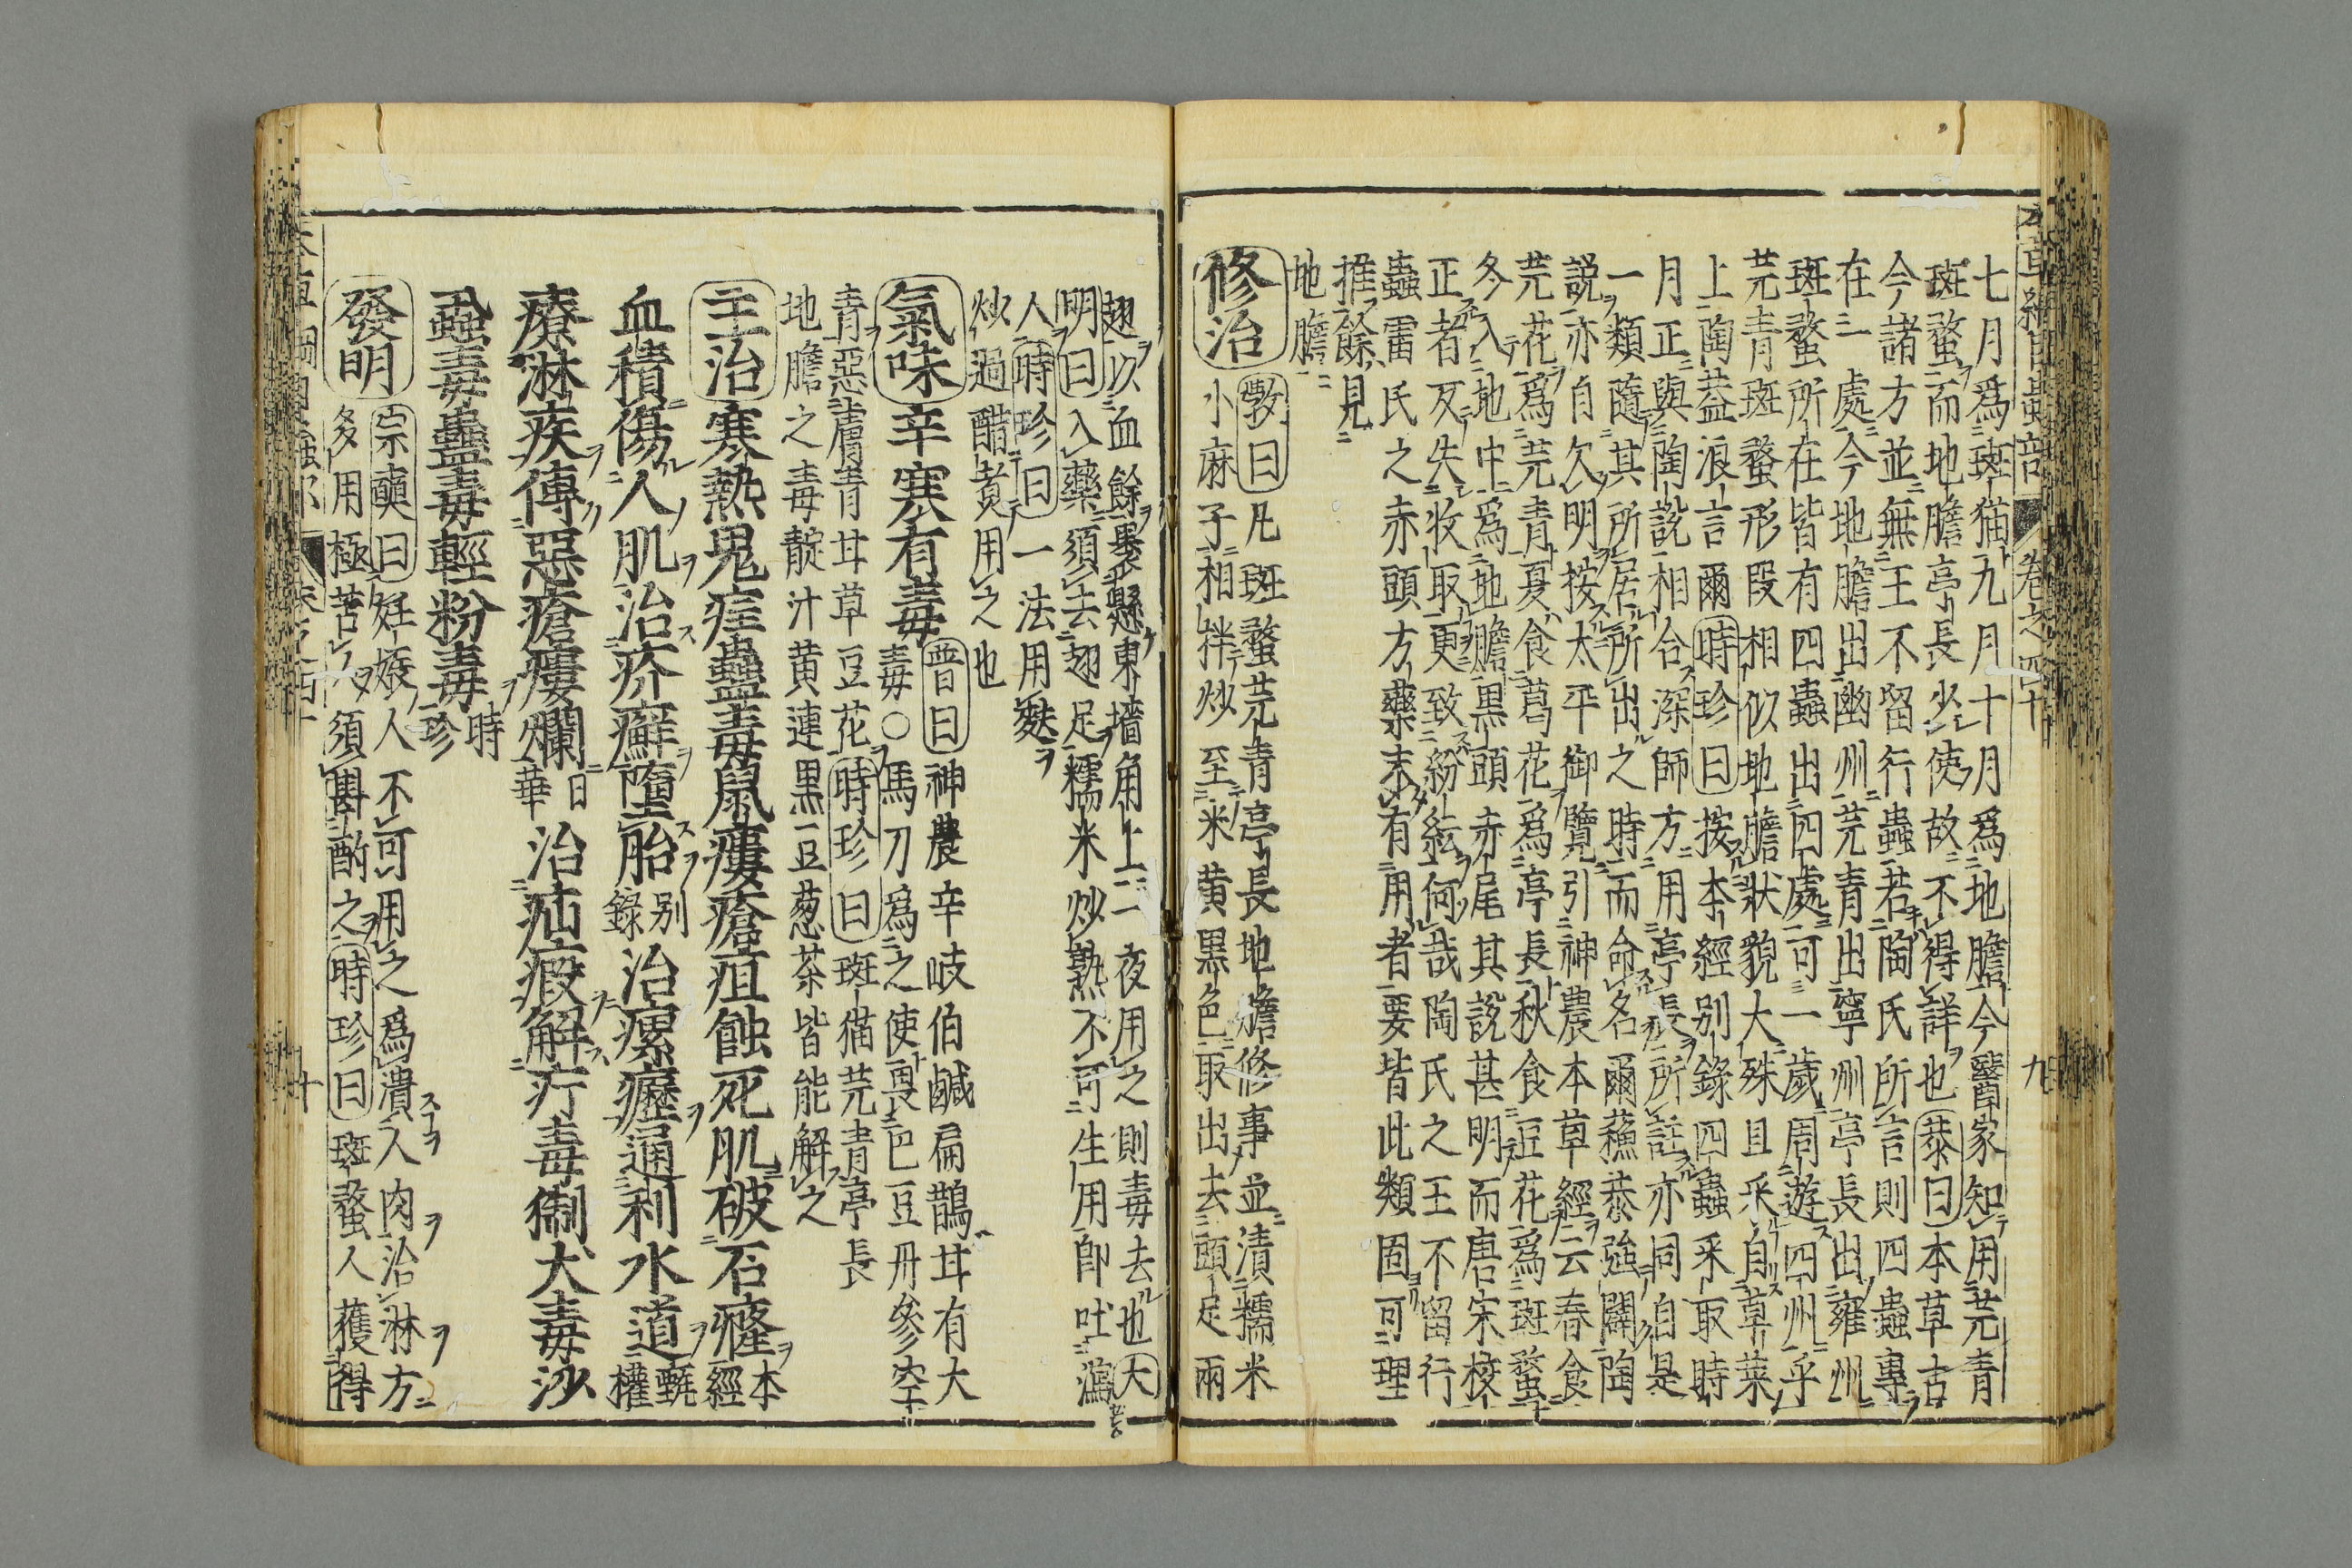 本草綱目蟲部 卷之四十 九
七月爲斑猫九月十月爲地膽今醫家知用芫青
斑蝥而地膽亭長少使故不得詳也恭曰本草古
今諸方並無王不留行蟲若陶氏所言則四蟲專
在一處今地膽出豳州芫青出寧州亭長出雍州
斑蝥所在皆有四蟲出四處可一歲周遊四州乎
芫青斑蝥形段相似地膽狀貌大殊且采自草萊
上陶蓋浪言爾時珍曰按本經別錄四蟲采取時
月正與陶說相合深師方用亭長所註亦同自是
一類隨其所居所出之時而命名爾蘇恭強闢陶
説亦自欠明按太平御覽引神農本草經云春食
芫花爲芫青夏食葛花爲亭長秋食豆花爲斑蝥
冬入地中爲地膽黒頭赤尾其說甚明而唐宋校
正者反失收取更致紛紜何哉陶氏之王不留行
蟲雷氏之赤頭方藥未有用者要皆此類固可理
推餘見
地膽
修治 斅曰凡斑蝥芫青亭長地膽修事並漬糯米
小麻子相拌炒至米黄黒色取出去頭足兩
翅以血餘裹懸東墻角上一夜用之則毒去也大
明曰入藥須去翅足糯米炒熟不可生用即吐瀉
人時珍曰一法用麩
炒過醋煑用之也
氣味 辛寒有毒 普曰神農辛岐伯鹹扁鵲甘有大
毒〇馬刀爲之使畏巴豆丹參空
青惡膚青甘草豆花時珍曰斑猫芫青亭長
地膽之毒靛汁黄連黒豆葱茶皆能解之
主治 寒熱鬼疰蠱毒鼠瘻瘡疽蝕死肌破石癃本經
血積傷人肌治疥癬墮胎別錄治瘰癧通利水道甄權
療淋疾傅惡瘡瘻爛日華治疝瘕解疔毒猘犬毒沙
虱毒蠱毒輕粉毒時珍
發明 宗奭曰妊娠人不可用之爲潰人肉治淋方
多用極苦人須斟酌之時珍曰斑蝥人獲得